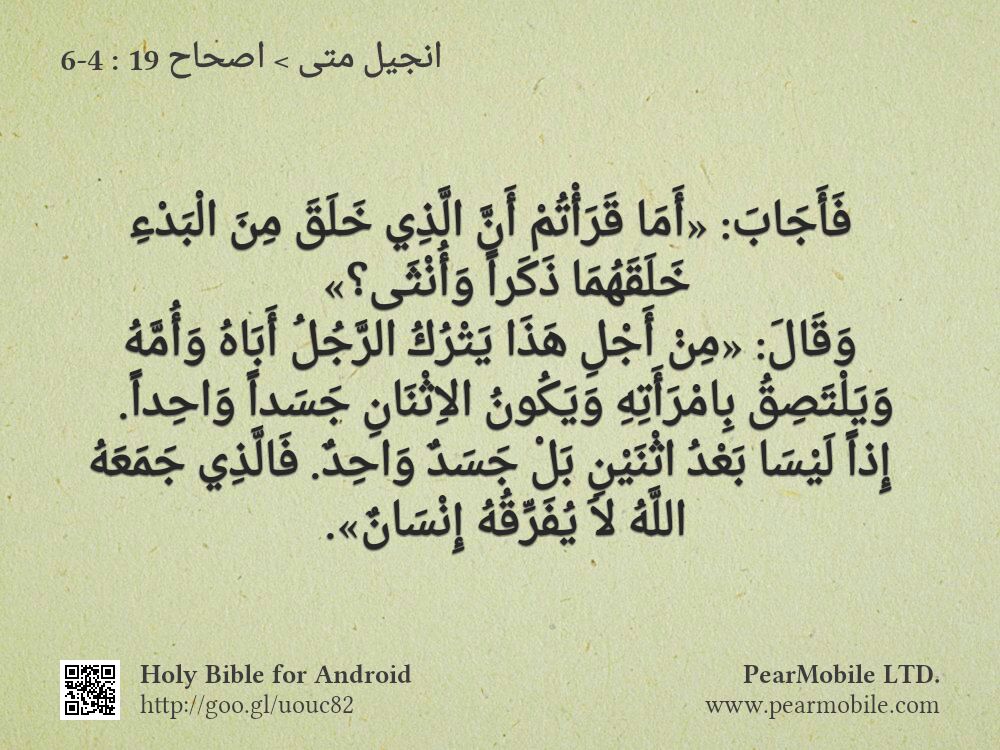 انجيل متى > اصحاح 19 : 4-6
فَأَجَابَ: «أَمَا قَرَأْتُمْ أَنَّ الَّذِي خَلَقَ مِنَ الْبَدْءِ
خَلَقَهُمَا ذَكَراً وَأُنْثَى؟»
وَقَالَ: «مِنْ أَجْلِ هَذَا يَتْرُكُ الرَّجُلُ أَبَاهُ وَأُمَّهُ
وَيَلْتَصِقُ بِامْرَأَتِهِ وَيَكُونُ الاِثْنَانِ جَسَداً وَاحِداً.
إِذاً لَيْسَا بَعْدُ اثْنَيْنِ بَلْ جَسَدٌ وَاحِدٌ. فَالَّذِي جَمَعَهُ
اللَّهُ لاَ يُفَرِّقُهُ إِنْسَانٌ».
Holy Bible for Android
http://goo.gl/uouc82
PearMobile LTD.
www.pearmobile.com